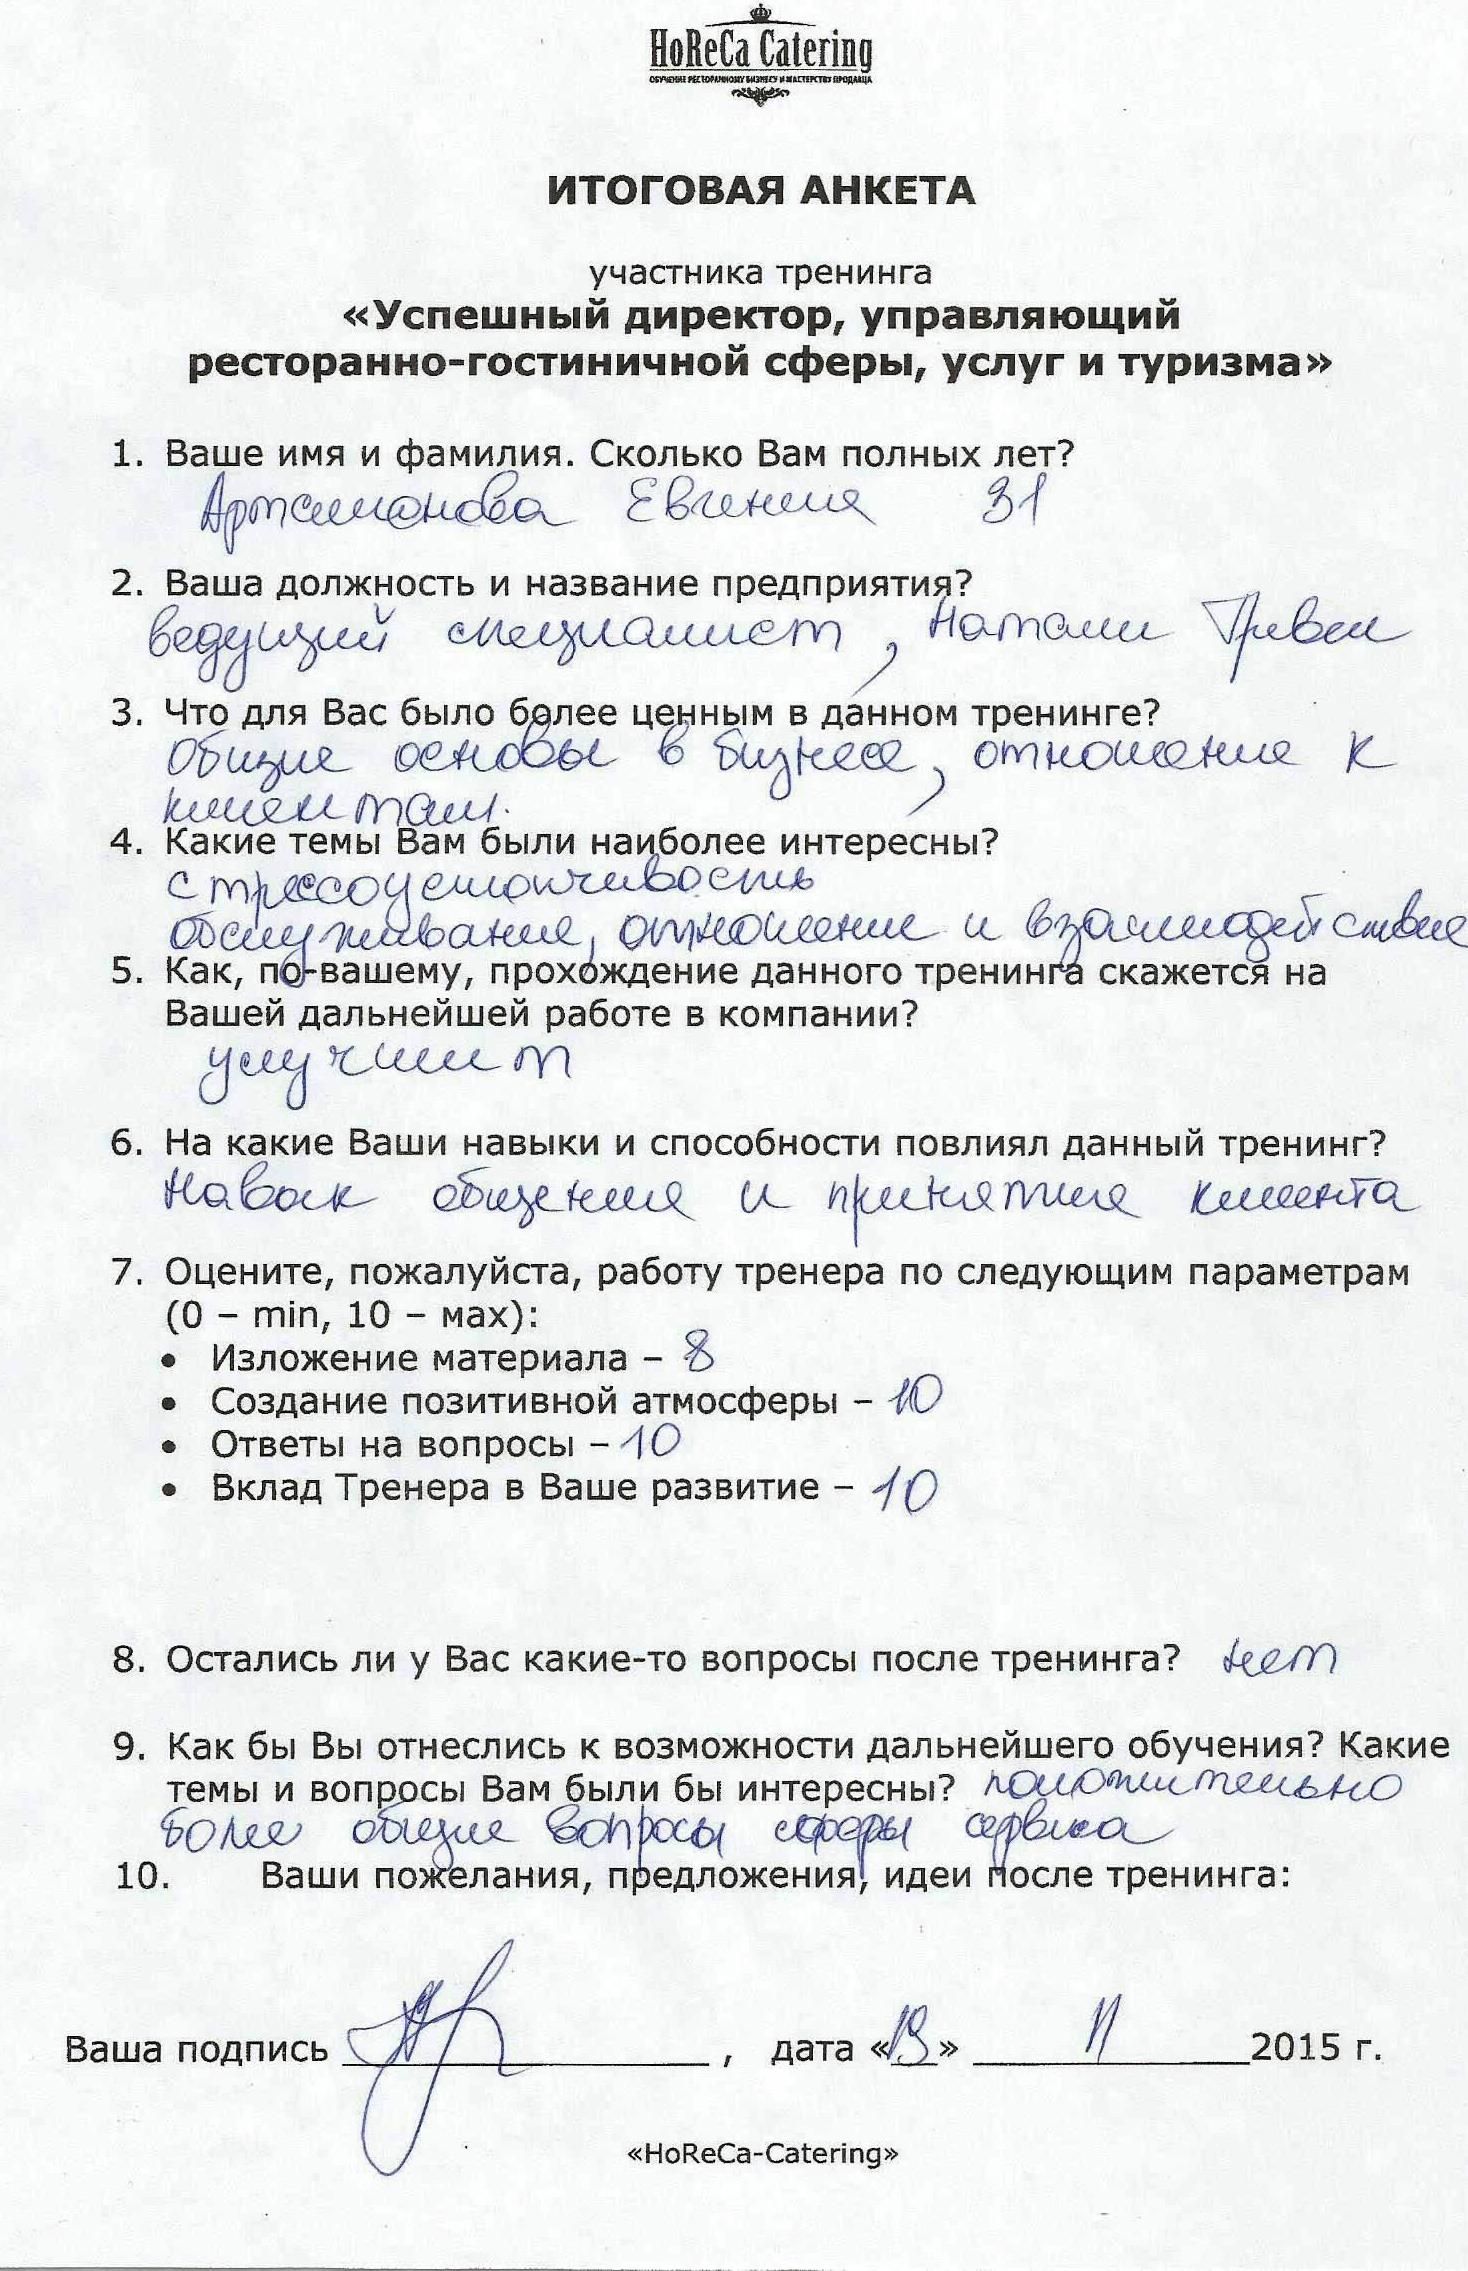 HoReCa Catering
ОБУЧЕНИЕ РЕСТОРАННОМУ БИЗНЕСУ И МАСТЕРСТВУ ПРОДАВЦА
ИТОГОВАЯ АНКЕТА
участника тренинга
«Успешный директор, управляющий
ресторанно-гостиничной сферы, услуг и туризма»
1. Ваше имя и фамилия. Сколько Вам полных лет?
Артамонова Евгения 31
2. Ваша должность и название предприятия?
ведущий специалист, Натали Тревел
3. Что для Вас было более ценным в данном тренинге?
Общие основы в бизнесе, отношение к
клиентам.
4. Какие темы Вам были наиболее интересны?
стрессоустойчивость
обслуживание, отношение и взаимодействие
5. Как, по-вашему, прохождение данного тренинга скажется на
Вашей дальнейшей работе в компании?
улучшит
6. На какие Ваши навыки и способности повлиял данный тренинг?
Навык общения и принятие клиента
7. Оцените, пожалуйста, работу тренера по следующим параметрам
(0 – min, 10 – мах):
• Изложение материала – 8
• Создание позитивной атмосферы – 10
• Ответы на вопросы – 10
• Вклад Тренера в Ваше развитие – 10
8. Остались ли у Вас какие-то вопросы после тренинга? нет
9. Как бы Вы отнеслись к возможности дальнейшего обучения? Какие
темы и вопросы Вам были бы интересны? положительно
более общие вопросы сферы сервиса
10. Ваши пожелания, предложения, идеи после тренинга:
Ваша подпись ______, дата «13» 11 2015 г.
«HoReCa-Catering»